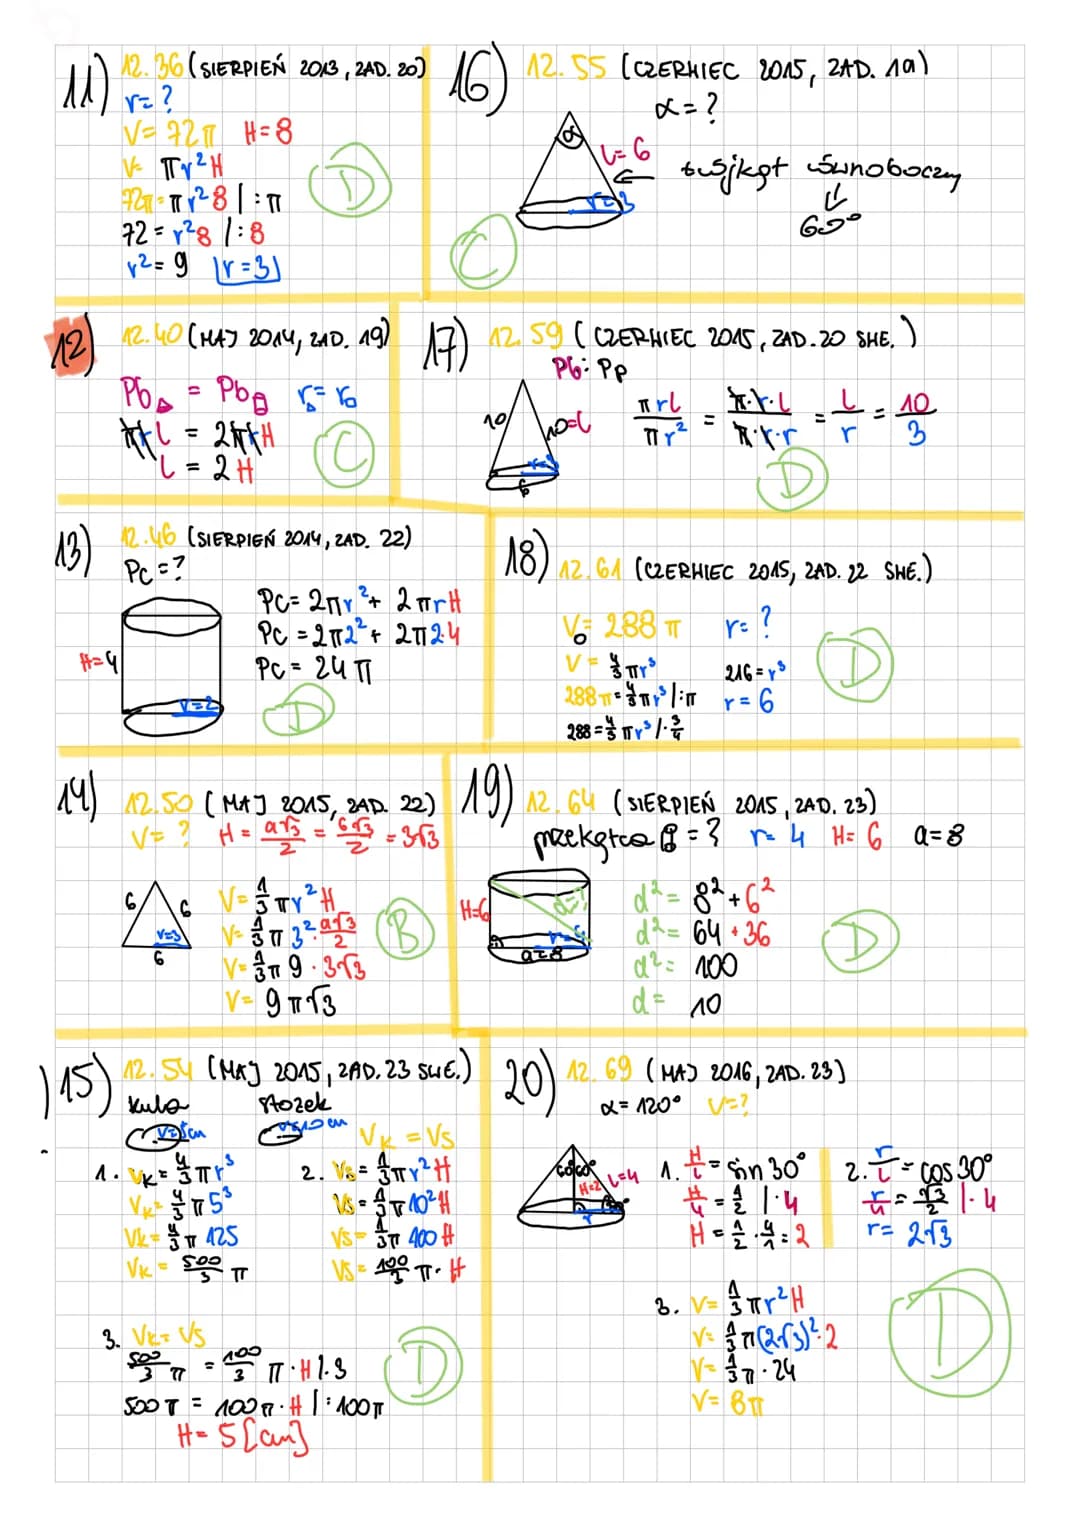 11) 12.36 (SIERPIEŃ 2013, ZAD. 20)
r = ?
V = 72π H = 8
V = πr²H
72π = πr²8 | :π
72 = r²8 | :8
r² = 9 r = 3
D
16) 12.55 (CZERWIEC 2015, ZAD. 19)
α = ?
α
l = 6
r = 3
trójkąt równoboczny
60°
C
12) 12.40 (MAJ 2014, ZAD. 19)
Pb = Pb r = r
πrl = 2πrH
l = 2H
C
17) 12.59 (CZERWIEC 2015, ZAD. 20 SKE.)
Pb : Pp
10 10=l
r=3
6
πrl/πr² = π·r·l/π·r·r = l/r = 10/3
D
13) 12.46 (SIERPIEŃ 2014, ZAD. 22)
Pc = ?
H=4
r=2
Pc = 2πr² + 2πrH
Pc = 2π2² + 2π2·4
Pc = 24π
D
18) 12.61 (CZERWIEC 2015, ZAD. 22 SKE.)
V = 288π r = ?
V = 4/3 πr³ 216 = r³
288π = 4/3 πr³ | :π r = 6
288 = 4/3 πr³ | · 3/4
D
14) 12.50 (MAJ 2015, ZAD. 22)
V = ? H = a√3/2 = 6√3/2 = 3√3
6 6
r=3
6
V = 1/3 πr²H
V = 1/3 π 3² · a√3/2
V = 1/3 π 9 · 3√3
V = 9π√3
B
19) 12.64 (SIERPIEŃ 2015, ZAD. 23)
przekątna = ? r = 4 H = 6 a = 8
H=6
d=?
r=4
a=8
d² = 8² + 6²
d² = 64 + 36
d² = 100
d = 10
D
15) 12.54 (MAJ 2015, ZAD. 23 SKE.)
kula stożek
r=5cm r=10cm
Vk = Vs
1. Vk = 4/3 πr³
Vk = 4/3 π 5³
Vk = 4/3 π 125
Vk = 500/3 π
2. Vs = 1/3 πr²H
Vs = 1/3 π 10² H
Vs = 1/3 π 100 H
Vs = 100/3 π · H
3. Vk = Vs
500/3 π = 100/3 π · H | · 3
500π = 100π · H | : 100π
H = 5 [cm]
D
20) 12.69 (MAJ 2016, ZAD. 23)
α = 120° V = ?
60° 60°
H=2
l=4
r
1. H/l = sin 30°
H/4 = 1/2 | · 4
H = 1/2 · 4/1 = 2
2. r/l = cos 30°
r/4 = √3/2 | · 4
r = 2√3
3. V = 1/3 πr²H
V = 1/3 π(2√3)² · 2
V = 1/3 π · 24
V = 8π
D